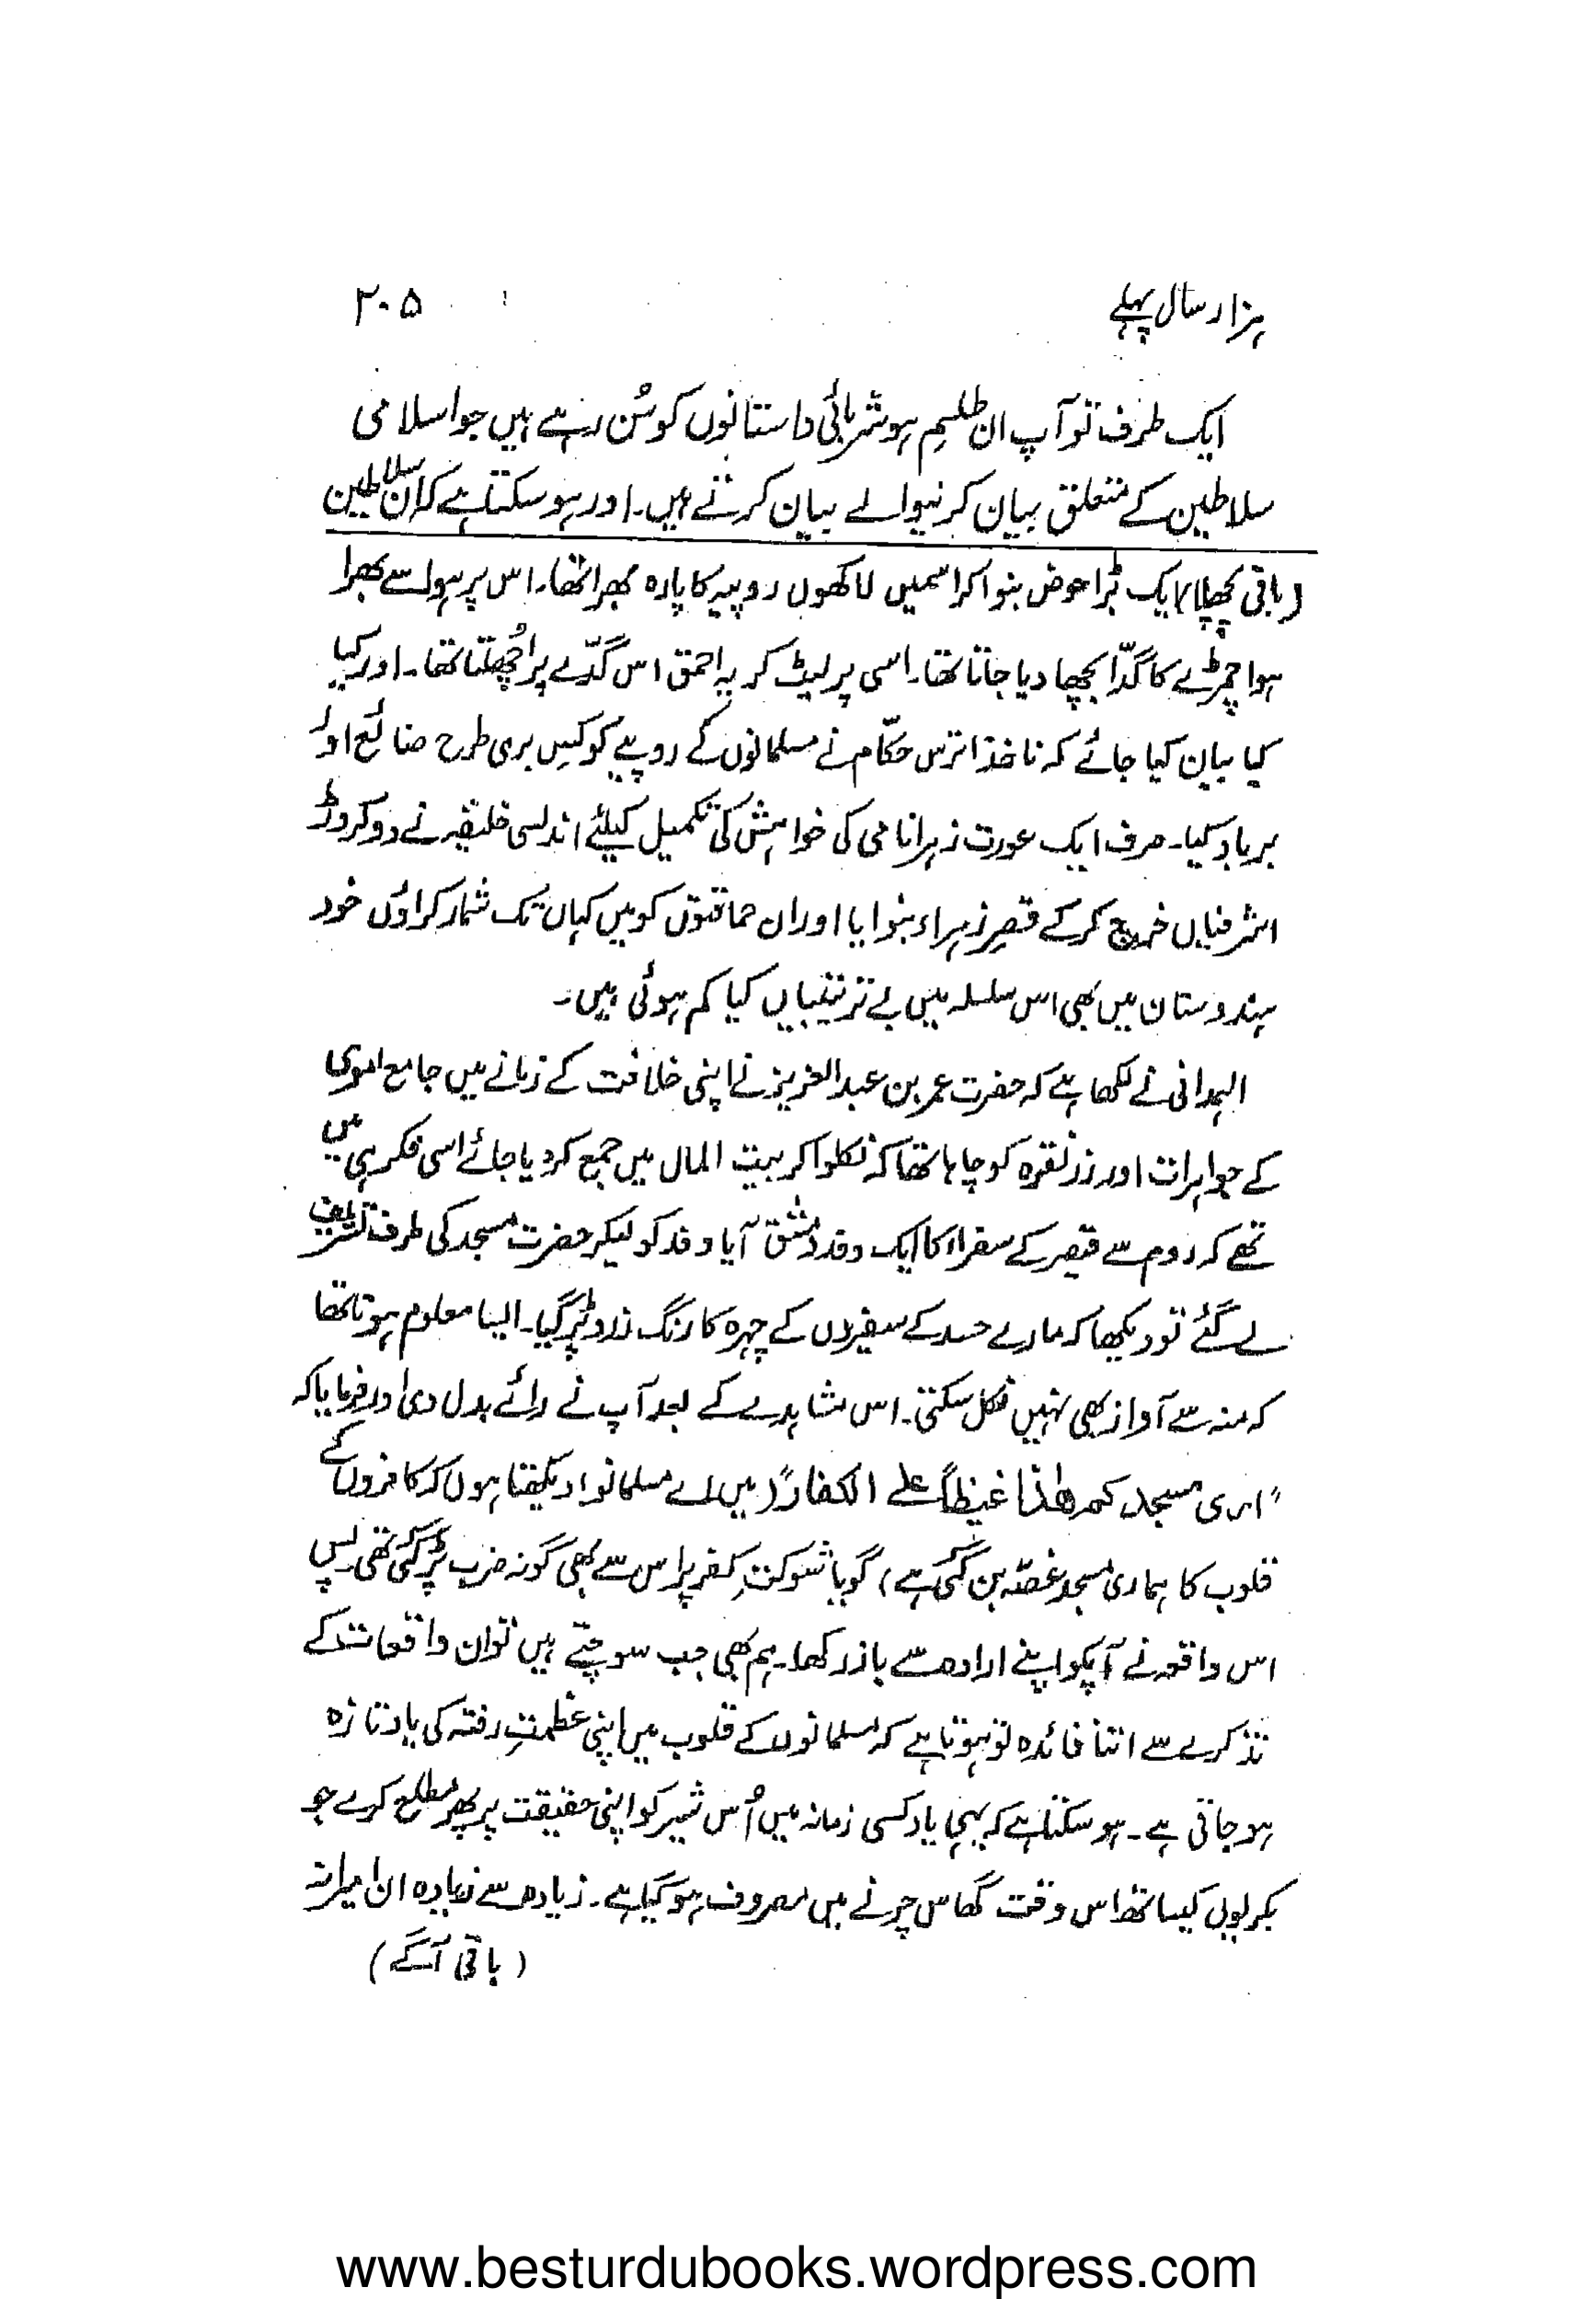 ہزار سال پہلے ۲۰۵
ایک طرف تو آپ ان طلسمِ ہوشربائی داستانوں کو سُن رہے ہیں جو اسلامی
سلاطین کے متعلق بیان کرنیوالے بیان کرتے ہیں۔ اور ہو سکتا ہے کہ ان سلاطین
(باقی پچھلا) ایک بڑا حوض بنوا کر اسمیں لاکھوں روپیہ کا پارہ بھرا تھا۔ اس پر ہوا سے بھرا
ہوا چمڑے کا گدّا بچھا دیا جاتا تھا۔ اسی پر لیٹ کر یہ احمق اس گدّے پر اُچھلتا تھا۔ اور کیا
کیا بیان کیا جائے کہ ناخدا ترس حکّام نے مسلمانوں کے روپیے کو کس بری طرح ضائع اور
برباد کیا۔ صرف ایک عورت زہرا نامی کی خواہش کی تکمیل کیلئے اندلسی خلیفہ نے دو کروڑ
اشرفیاں خرچ کر کے قصرِ زہراء بنوایا اور ان حماقتوں کو میں کہاں تک شمار کراؤں خود
ہندوستان میں بھی اس سلسلہ میں بے ترتیبیاں کیا کم ہوئی ہیں۔
الہمدانی نے لکھا ہے کہ حضرت عمر بن عبدالعزیز نے اپنی خلافت کے زمانے میں جامع اموی
کے جواہرات اور زر نقرہ کو چاہا تھا کہ نکلوا کر بیت المال میں جمع کر دیا جائے اسی فکر ہی میں
تھے کہ روم سے قیصر کے سفراء کا ایک وفد دمشق آیا وفد کو لیکر حضرت مسجد کی طرف تشریف
لے گئے تو دیکھا کہ مارے حسد کے سفیروں کے چہرہ کا رنگ زرد پڑ گیا۔ ایسا معلوم ہوتا تھا
کہ منہ سے آواز بھی نہیں نکل سکتی۔ اس مشاہدے کے بعد آپ نے رائے بدل دی اور فرمایا کہ
"اری مسجد کمر ھٰذا غیظاً علے الکفار" (میں اے مسلمانو! دیکھتا ہوں کہ کافروں کے
قلوب کا ہماری مسجد غصّہ بن گئی ہے) گویا شوکتِ کفر پر اس سے بھی گونہ ضرب پڑ گئی تھی پس
اس واقعہ نے آپکو اپنے ارادہ سے باز رکھا۔ ہم بھی جب سوچتے ہیں تو ان واقعات کے
تذکرے سے اتنا فائدہ تو ہوتا ہے کہ مسلمانوں کے قلوب میں اپنی عظمتِ رفتہ کی یاد تازہ
ہو جاتی ہے۔ ہو سکتا ہے کہ یہی یاد کسی زمانہ میں اُس شیر کو اپنی حقیقت پر پھر مطلع کرے جو
بکریوں کیساتھ اس وقت گھاس چرنے میں مصروف ہو گیا ہے۔ زیادہ سے زیادہ ان امیرانہ
(باقی آگے)
www.besturdubooks.wordpress.com